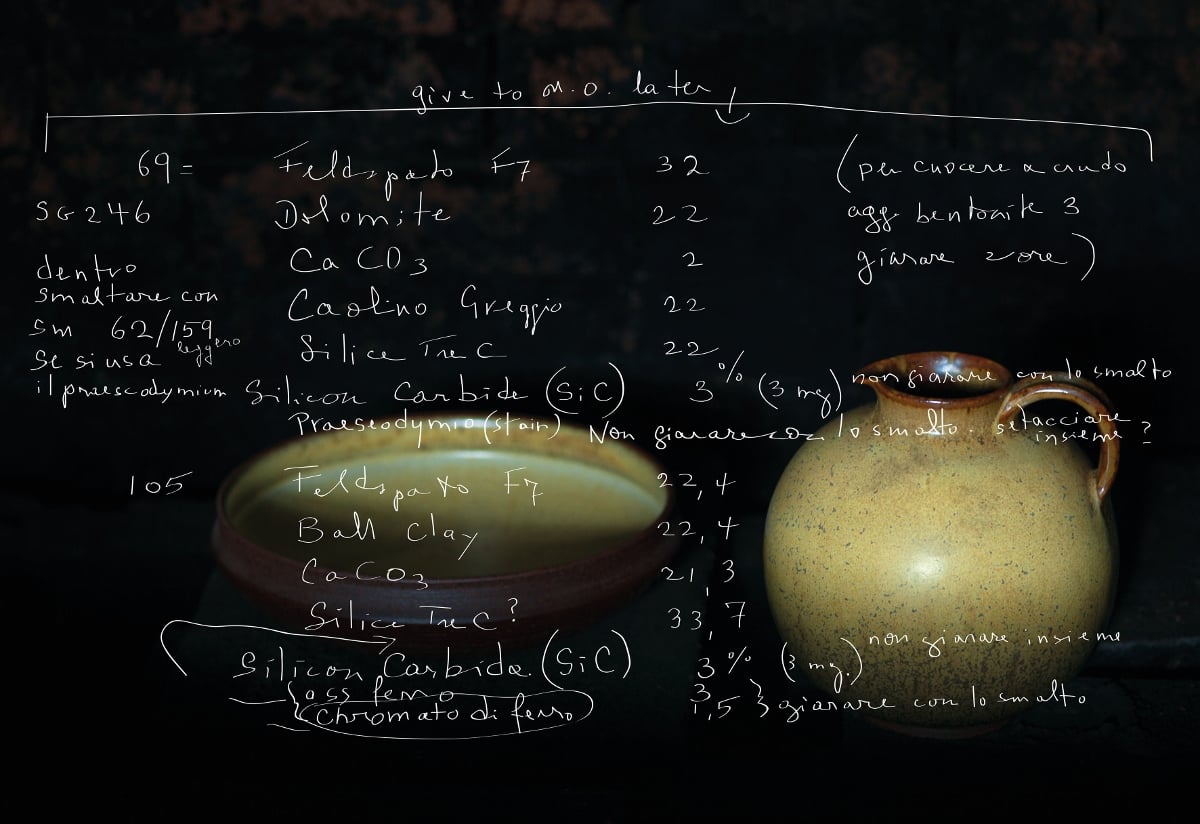 give to M.O. later
69 = Feldspato F7 32 (per cuocere a crudo
SG 246 Dolomite 22 agg. bentonite 3
dentro CaCO3 2 giarare 2 ore)
smaltare con Caolino Greggio 22
SM 62/159 leggero
se si usa Silice Tre C 22
il praesodymium Silicon Carbide (SiC) 3% (3 mg) non giarare con lo smalto
Praeseodymio (stain) Non giarare con lo smalto. setacciare insieme?
105 Feldspato F7 22,4
Ball Clay 22,4
CaCO3 21,3
Silice Tre C? 33,7
Silicon Carbide (SiC) 3% (3 mg.) non giarare insieme
oss ferro 3
chromato di ferro 1,5 } giarare con lo smalto